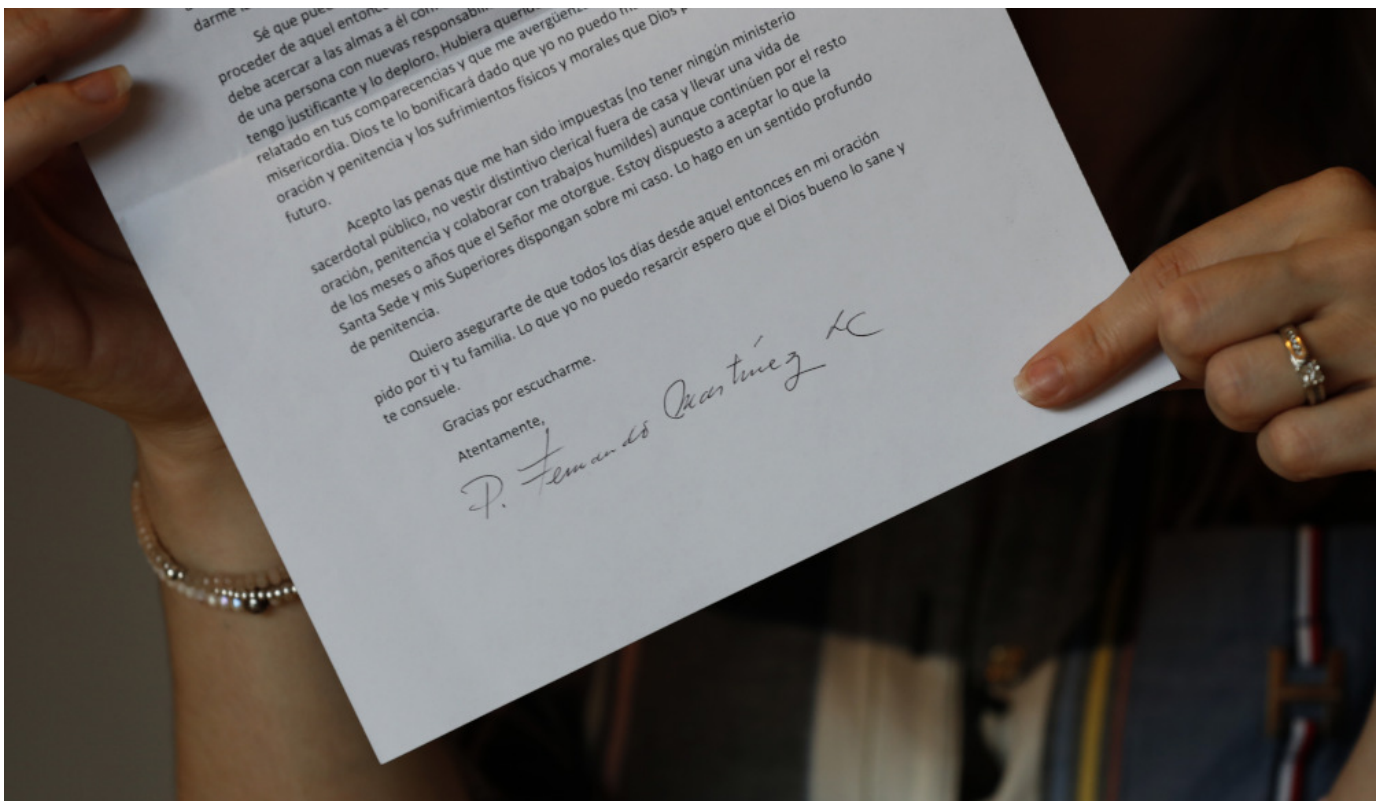 darme
Sé que
proceder de aquel entonces
debe acercar a las almas a él
de una persona con nuevas
tengo justificante y lo deploro. Hubiera
relatado en tus comparecencias y que me
misericordia. Dios te lo bonificará dado que yo no puedo
oración y penitencia y los sufrimientos físicos y morales que Dios
futuro.
Acepto las penas que me han sido impuestas (no tener ningún ministerio
sacerdotal público, no vestir distintivo clerical fuera de casa y llevar una vida de
oración, penitencia y colaborar con trabajos humildes) aunque continúen por el resto
de los meses o años que el Señor me otorgue. Estoy dispuesto a aceptar lo que la
Santa Sede y mis Superiores dispongan sobre mi caso. Lo hago en un sentido profundo
de penitencia.
Quiero asegurarte de que todos los días desde aquel entonces en mi oración
pido por ti y tu familia. Lo que yo no puedo resarcir espero que el Dios bueno lo sane y
te consuele.
Gracias por escucharme.
Atentamente,
P. Fernando Martínez LC